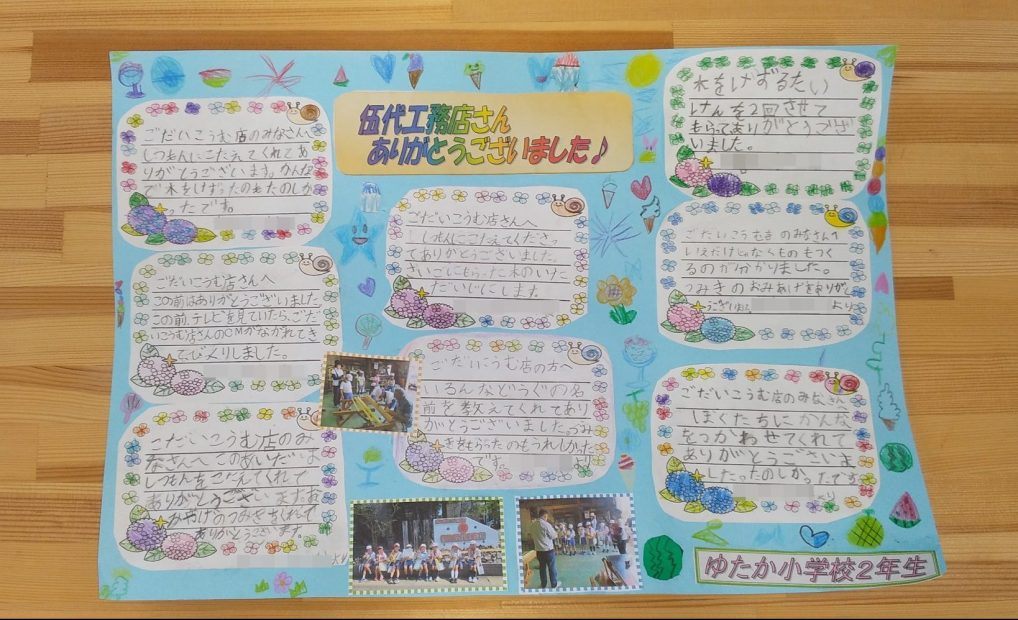 伍代工務店さん
ありがとうございました♪
ごだいこうむ店のみなさんへ
しつもんにこたえてくれてあ
りがとうございます。かんな
で木をけずったのもたのしか
ったです。
ごだいこうむ店さんへ
この前はありがとうございました
この前、テレビを見ていたら、ごだ
いこうむ店さんのCMがながれてき
てびっくりしました。
ごだいこうむ店のみ
なさんへ このあいだは
しつもんをこたえてくれて
ありがとうござい ますお
みやげのつみきをくれて
ありがとうございます。
より
ごだいこうむ店さんへ
しつもんにこたえてくださっ
てありがとうございました。
さいごにもらった木のいた
だいじにします。
ごだいこうむ店の方へ
いろんなどうぐの名
前を教えてくれてあり
がとうございました。つみ
きをもらったのもうれしかった
です。 より
木をけずるたい
けんを2回させて
もらってありがとうござ
いました。
ごだいこうむきのみなさんへ
いえだけじゃなくものもつく
るのがわかりました。
つみきのおみあげをありがと
うございました より
ごだいこうむ店のみなさんへ
ぼくたちにかんな
をつかわせてくれて
ありがとうございま
したったのしか。ったです
より
ゆたか小学校2年生